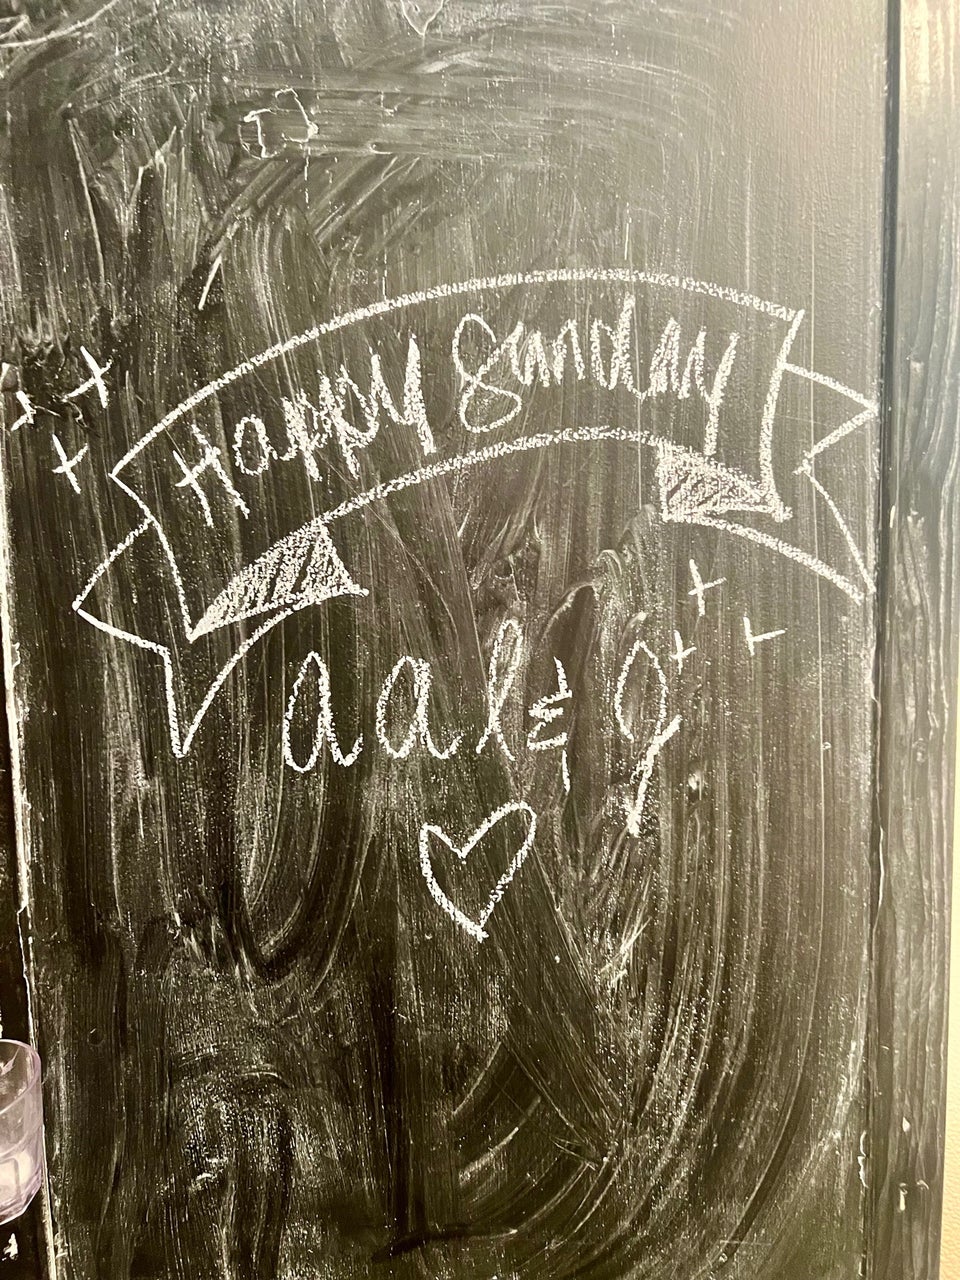 Happy Sunday
aal & g